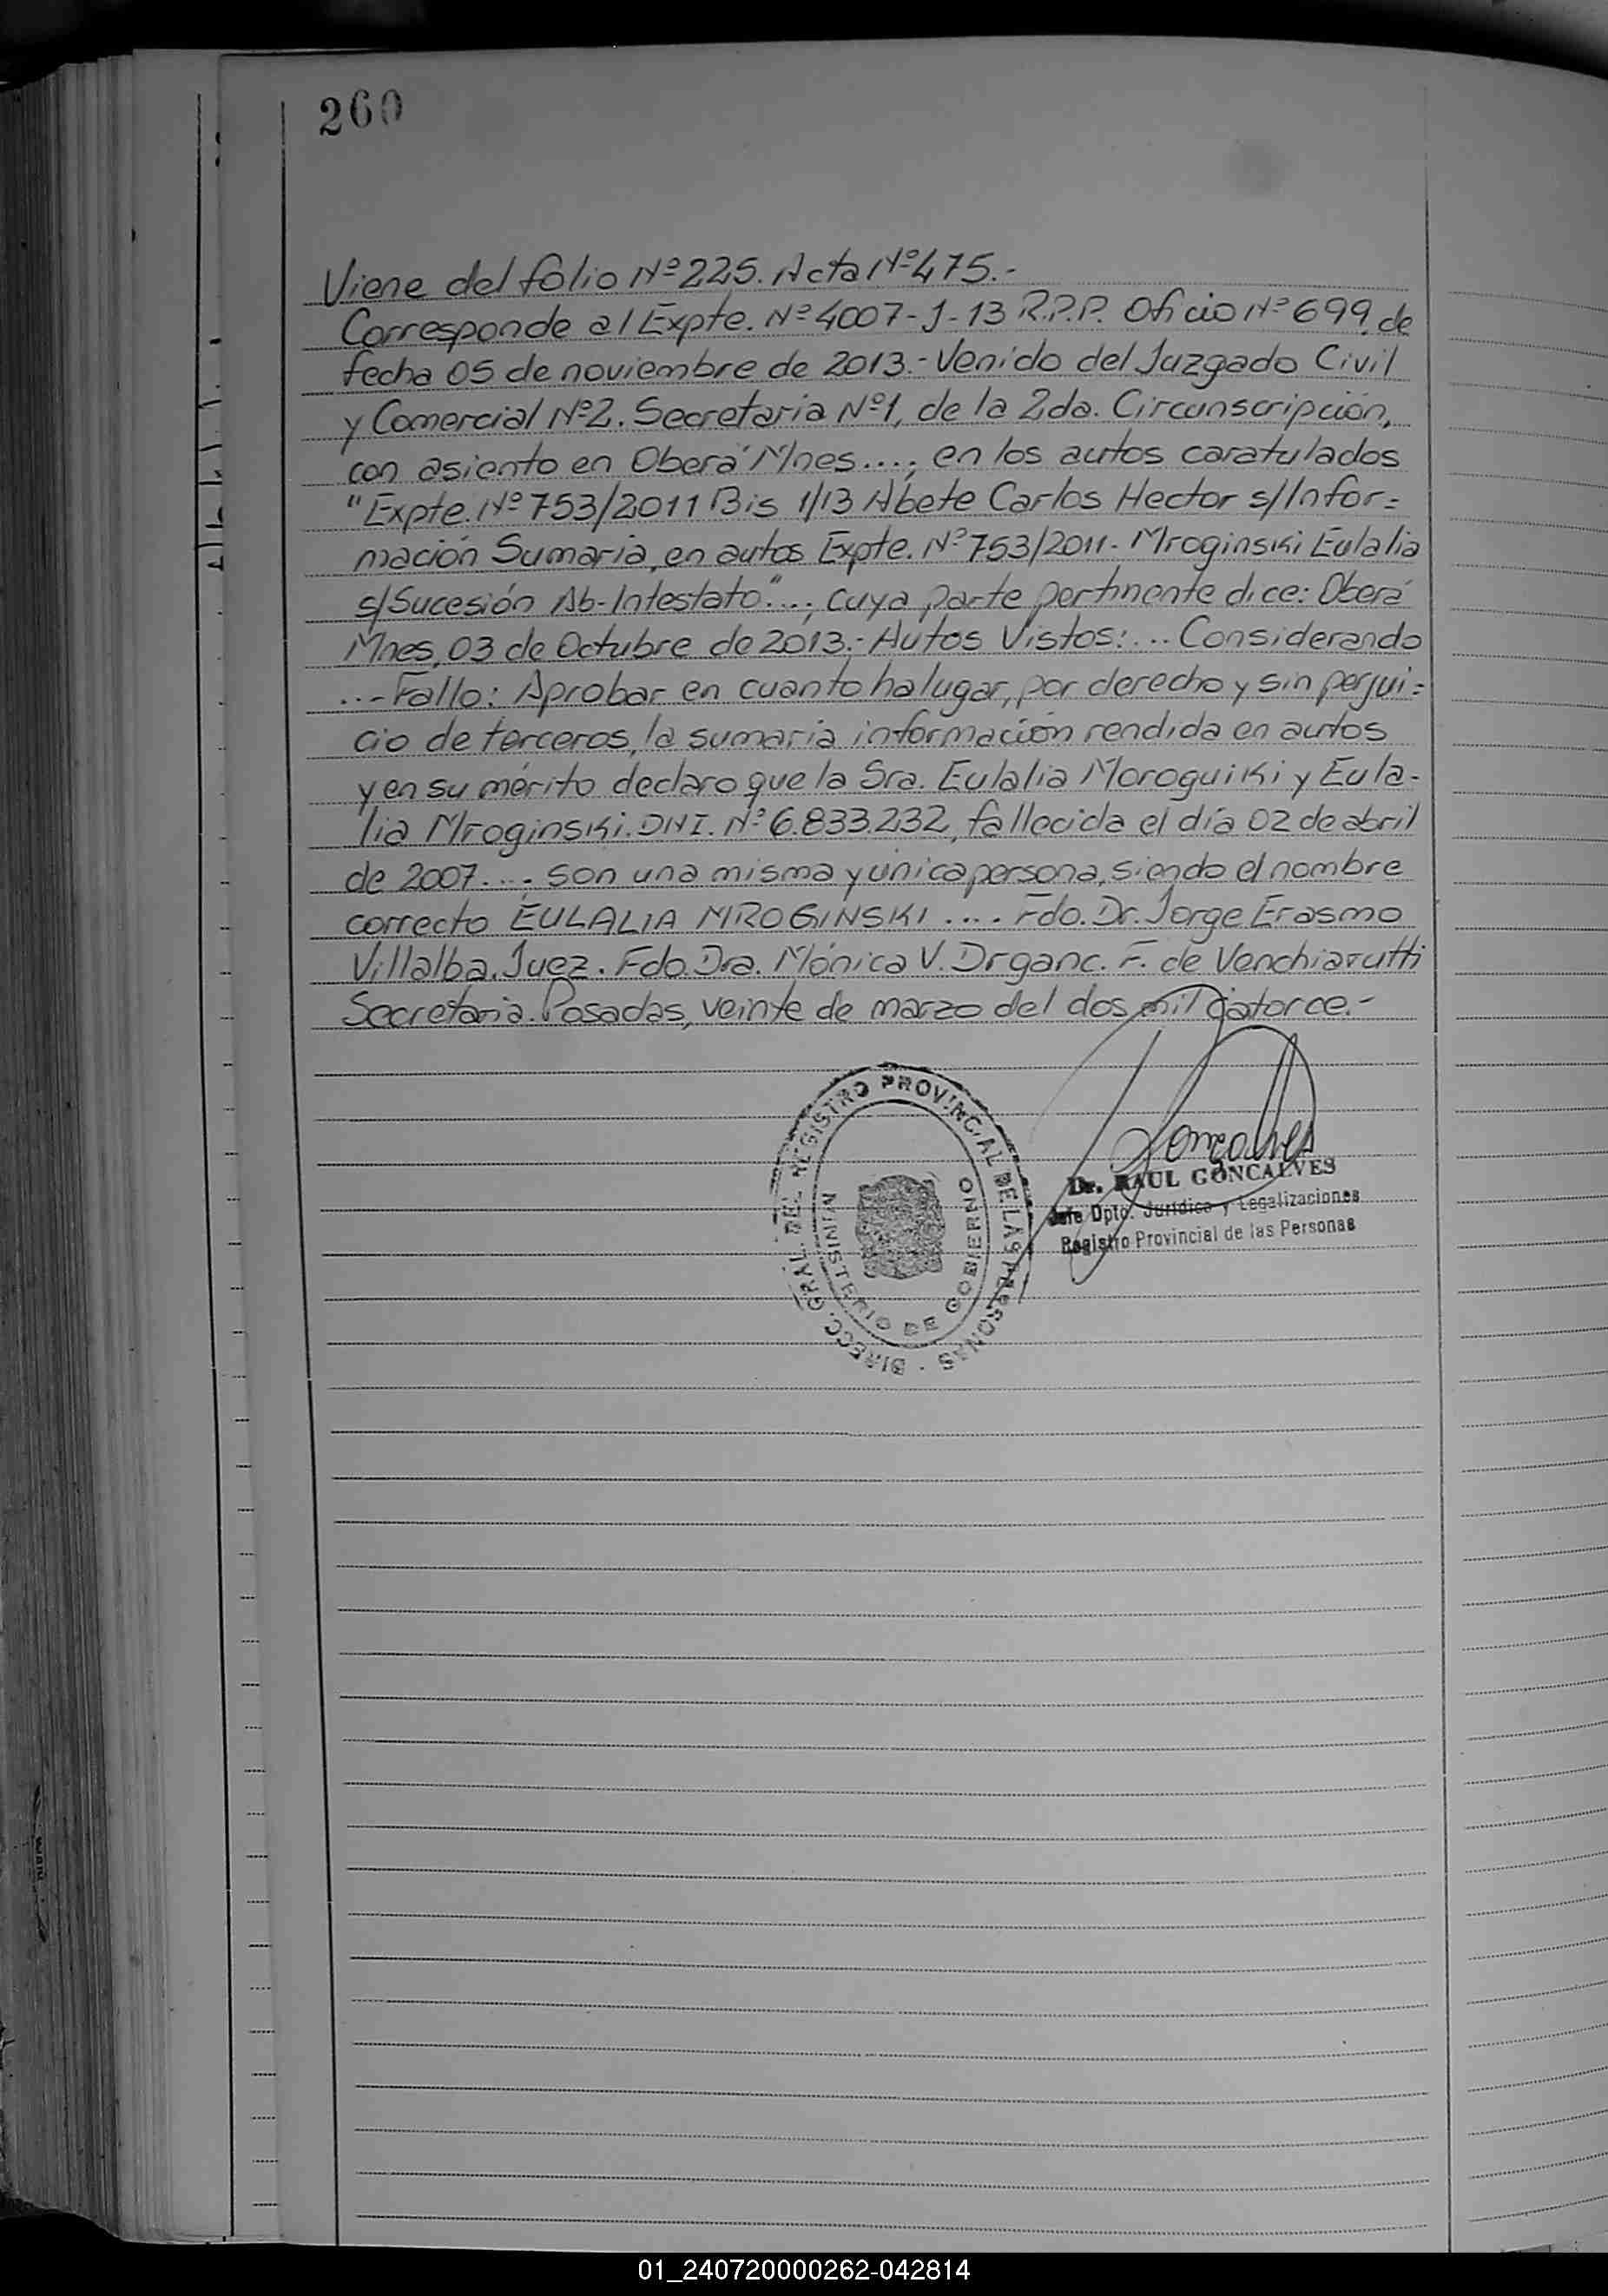 260
Viene del folio Nº 225. Acta Nº 475.-
Corresponde al Expte. Nº 4007-J-13 R.P.P. Oficio Nº 699, de
fecha 05 de noviembre de 2013.- Venido del Juzgado Civil
y Comercial Nº 2. Secretaria Nº 1, de la 2da. Circunscripción,
con asiento en Oberá Mnes....; en los autos caratulados
"Expte. Nº 753/2011 Bis 1/13 Abete Carlos Hector s/Infor=
mación Sumaria, en autos Expte. Nº 753/2011- Mroginski Eulalia
s/Sucesión Ab-Intestato"...; cuya parte pertinente dice: Oberá
Mnes, 03 de Octubre de 2013.- Autos Vistos:... Considerando
...- Fallo: Aprobar en cuanto ha lugar, por derecho y sin perjui=
cio de terceros, la sumaria información rendida en autos
y en su mérito declaro que la Sra. Eulalia Moroguiki y Eula-
lia Mroginski. DNI. Nº 6.833.232, fallecida el día 02 de abril
de 2007....; son una misma y única persona, siendo el nombre
correcto EULALIA MROGINSKI .... Fdo. Dr. Jorge Erasmo
Villalba. Juez. Fdo. Dra. Mónica V. Drganc. F. de Venchiarutti
Secretaria. Posadas, veinte de marzo del dos mil catorce.-
DIRECC. GRAL. DEL REGISTRO PROVINCIAL DE LAS PERSONAS
MINISTERIO DE GOBIERNO
Gonçalves
Dr. RAUL GONCALVES
Jefe Dpto. Jurídico y Legalizaciones
Registro Provincial de las Personas
01_240720000262-042814